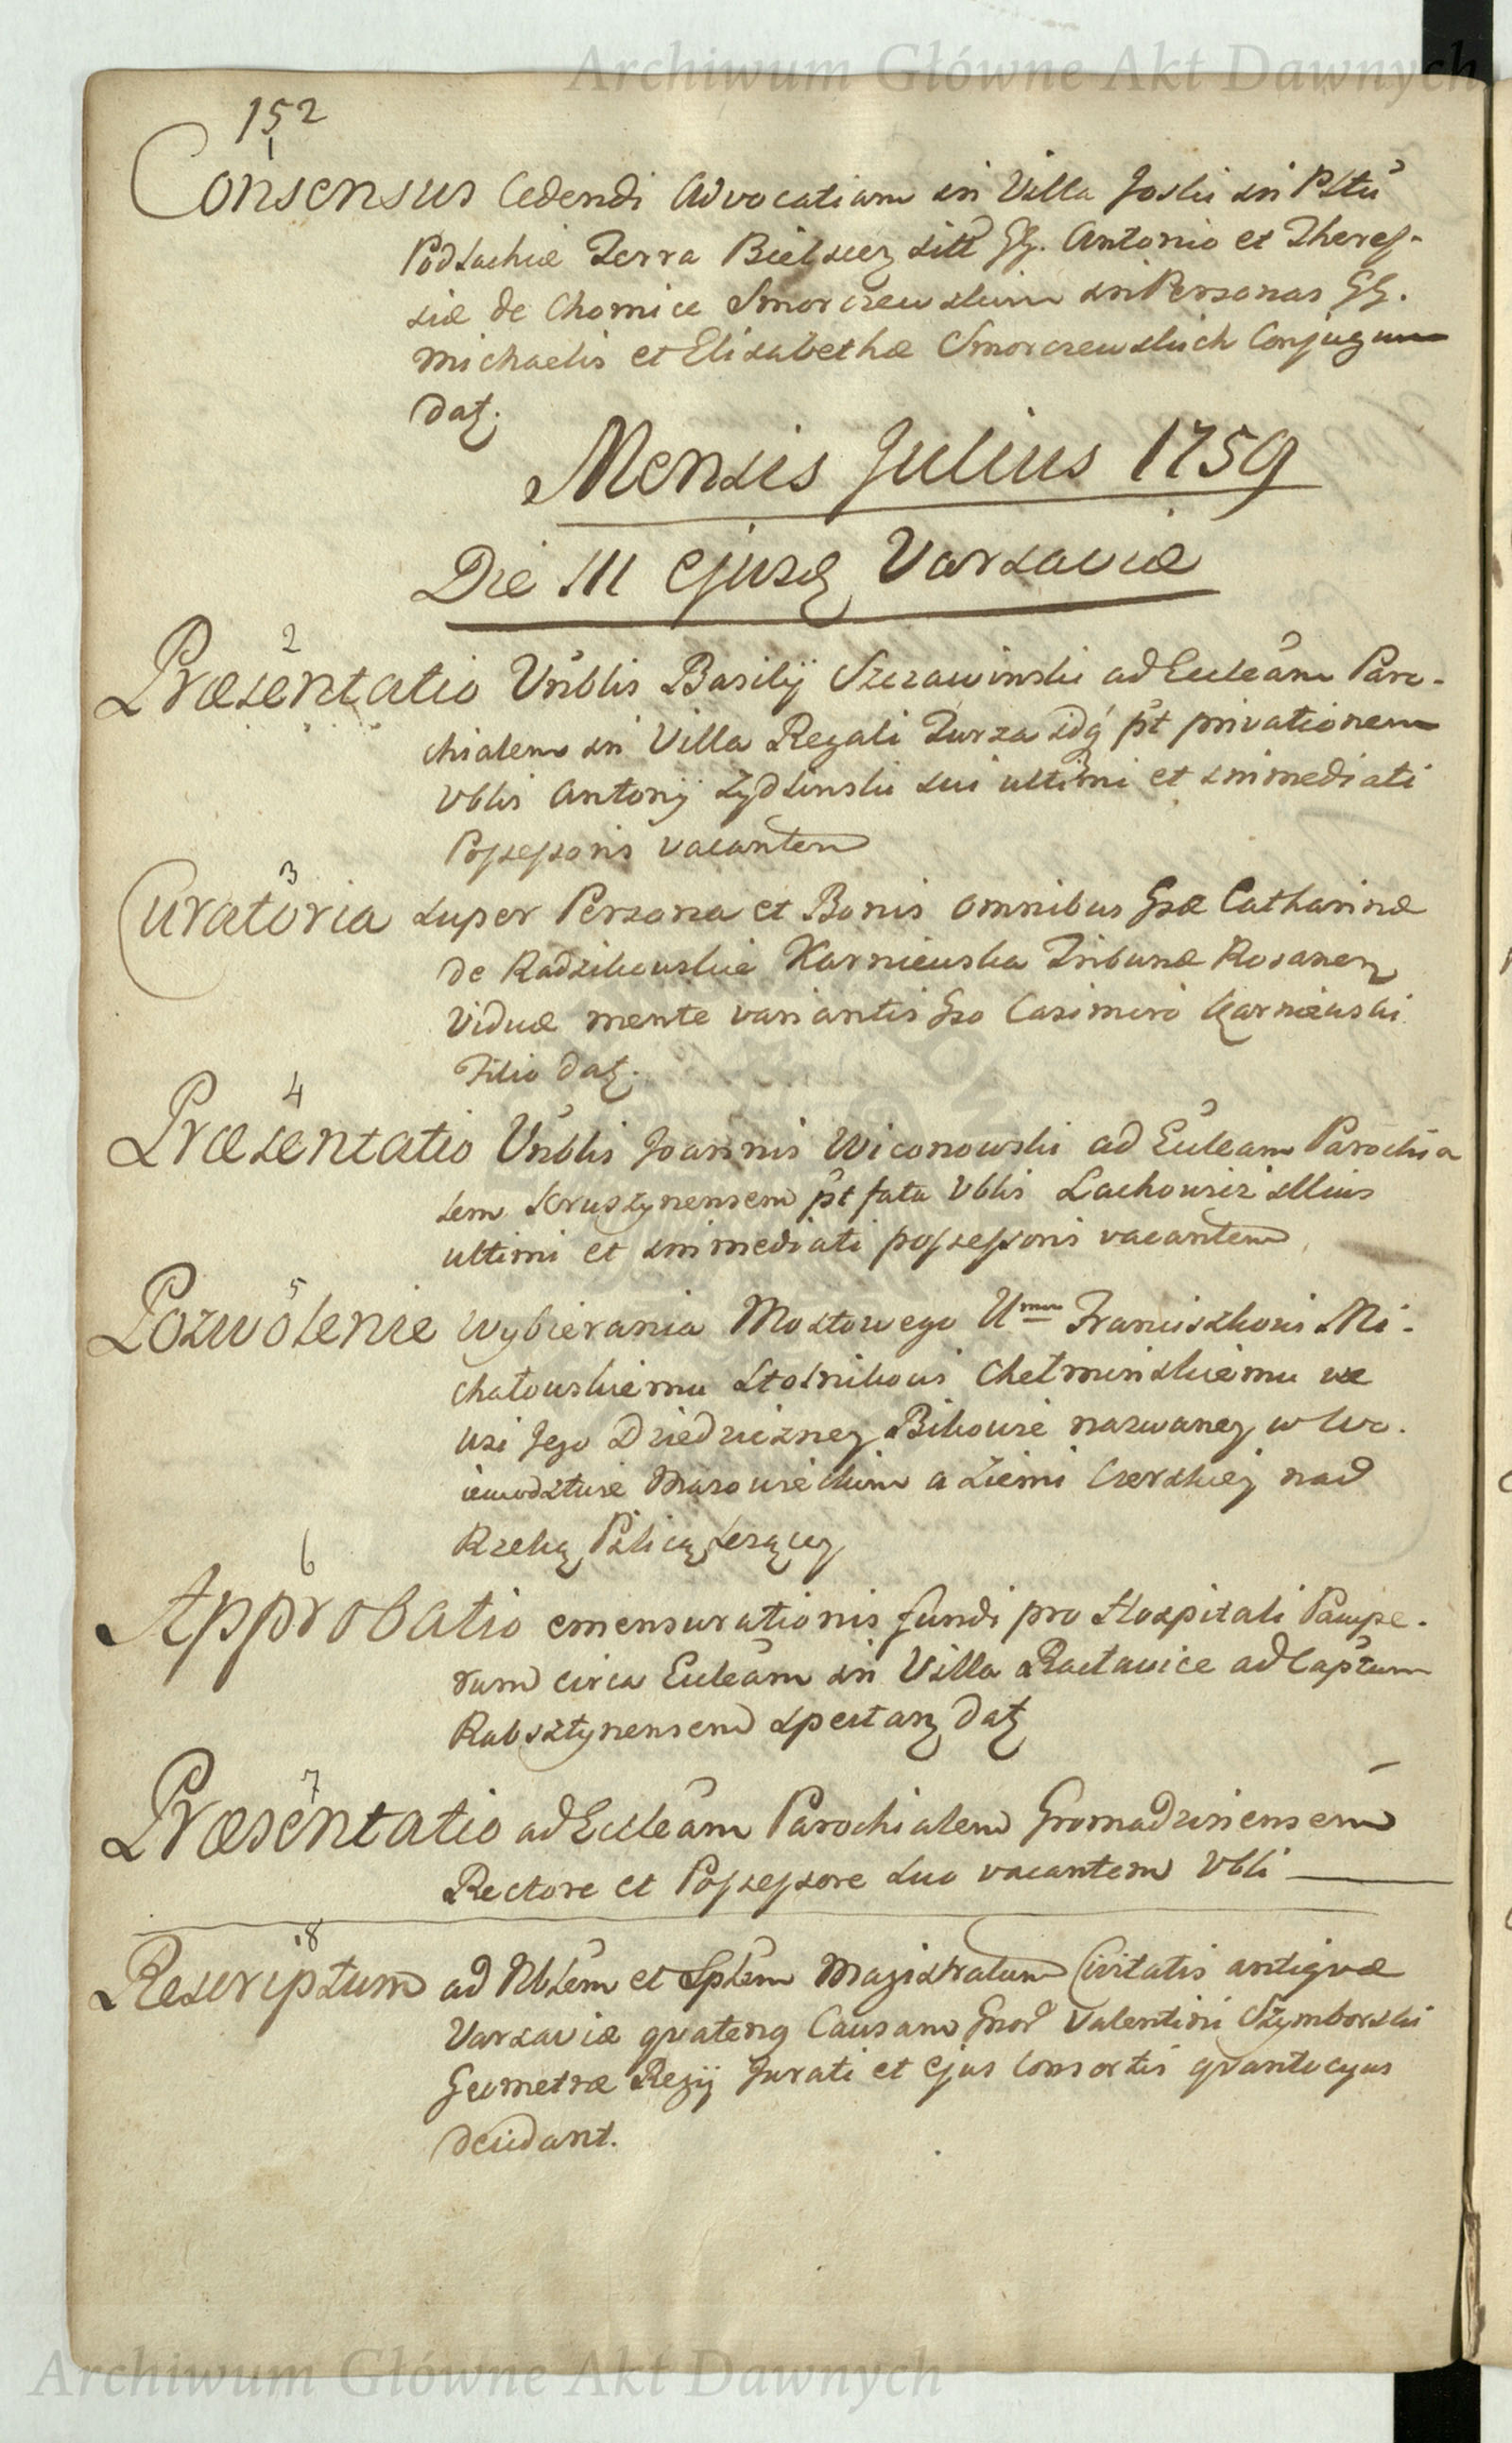 Archiwum Główne Akt Dawnych
152
1
Consensus Cedendi Advocatiam in Villa Joski in Pltu
Podlachiæ Terra Bielscen sitt GG. Antonio et Theres-
siæ de Chomice Smorczewskim in Personas GG.
Michaelis et Elisabethæ Smorczewskich Conjugum
Dat.
Mensis Julius 1759
Die III ejusd Varsaviæ
2
Præsentatio Vnblis Basilij Szczawinski ad Eccleam Paro-
chialem in Villa Regali Turza idq pt privationem
Vblis Antonij Zydlinski sui ultimi et immediati
Possessoris vacantem
3
Curatoria super Persona et Bonis omnibus Gsæ Catharinæ
de Radzikowskie Karniewska Tribunæ Rosanen
Viduæ mente variantis Gso Casimiro Karniewski
Filio dat.
4
Præsentatio Vnblis Joannis Wiconowski ad Eccleam Parochia
lem Kruszynensem pt fata Vblis Lachowicz illius
ultimi et immediati possessoris vacantem
5
Pozwolenie wybierania Mostowego Umu Franciszkowi Mi-
chałowskiemu Stolnikowi Chełminskiemu we
wsi Jego Dziedziczney Bikowie nazwaney w Wo-
iewodztwie Mazowieckim a Ziemi Czerskiey nad
Rzeką Pilicą Leżącey
6
Approbatio emensurationis fundi pro Hospitali Paupe-
rum circa Eccleam in Villa Racławice ad Captum
Rabsztynensem spectan dat
7
Præsentatio ad Eccleam Parochialem Gromadzinensem
Rectore et Possessore suo vacantem Vbli
8
Rescriptum ad Nblem et Splem Magistratum Civitatis antiquæ
Varsaviæ quatenq Causam Gnor Valentini Szymborski
Geometræ Regij Jurati et ejus Consortis quantocyus
decidant.
Archiwum Główne Akt Dawnych